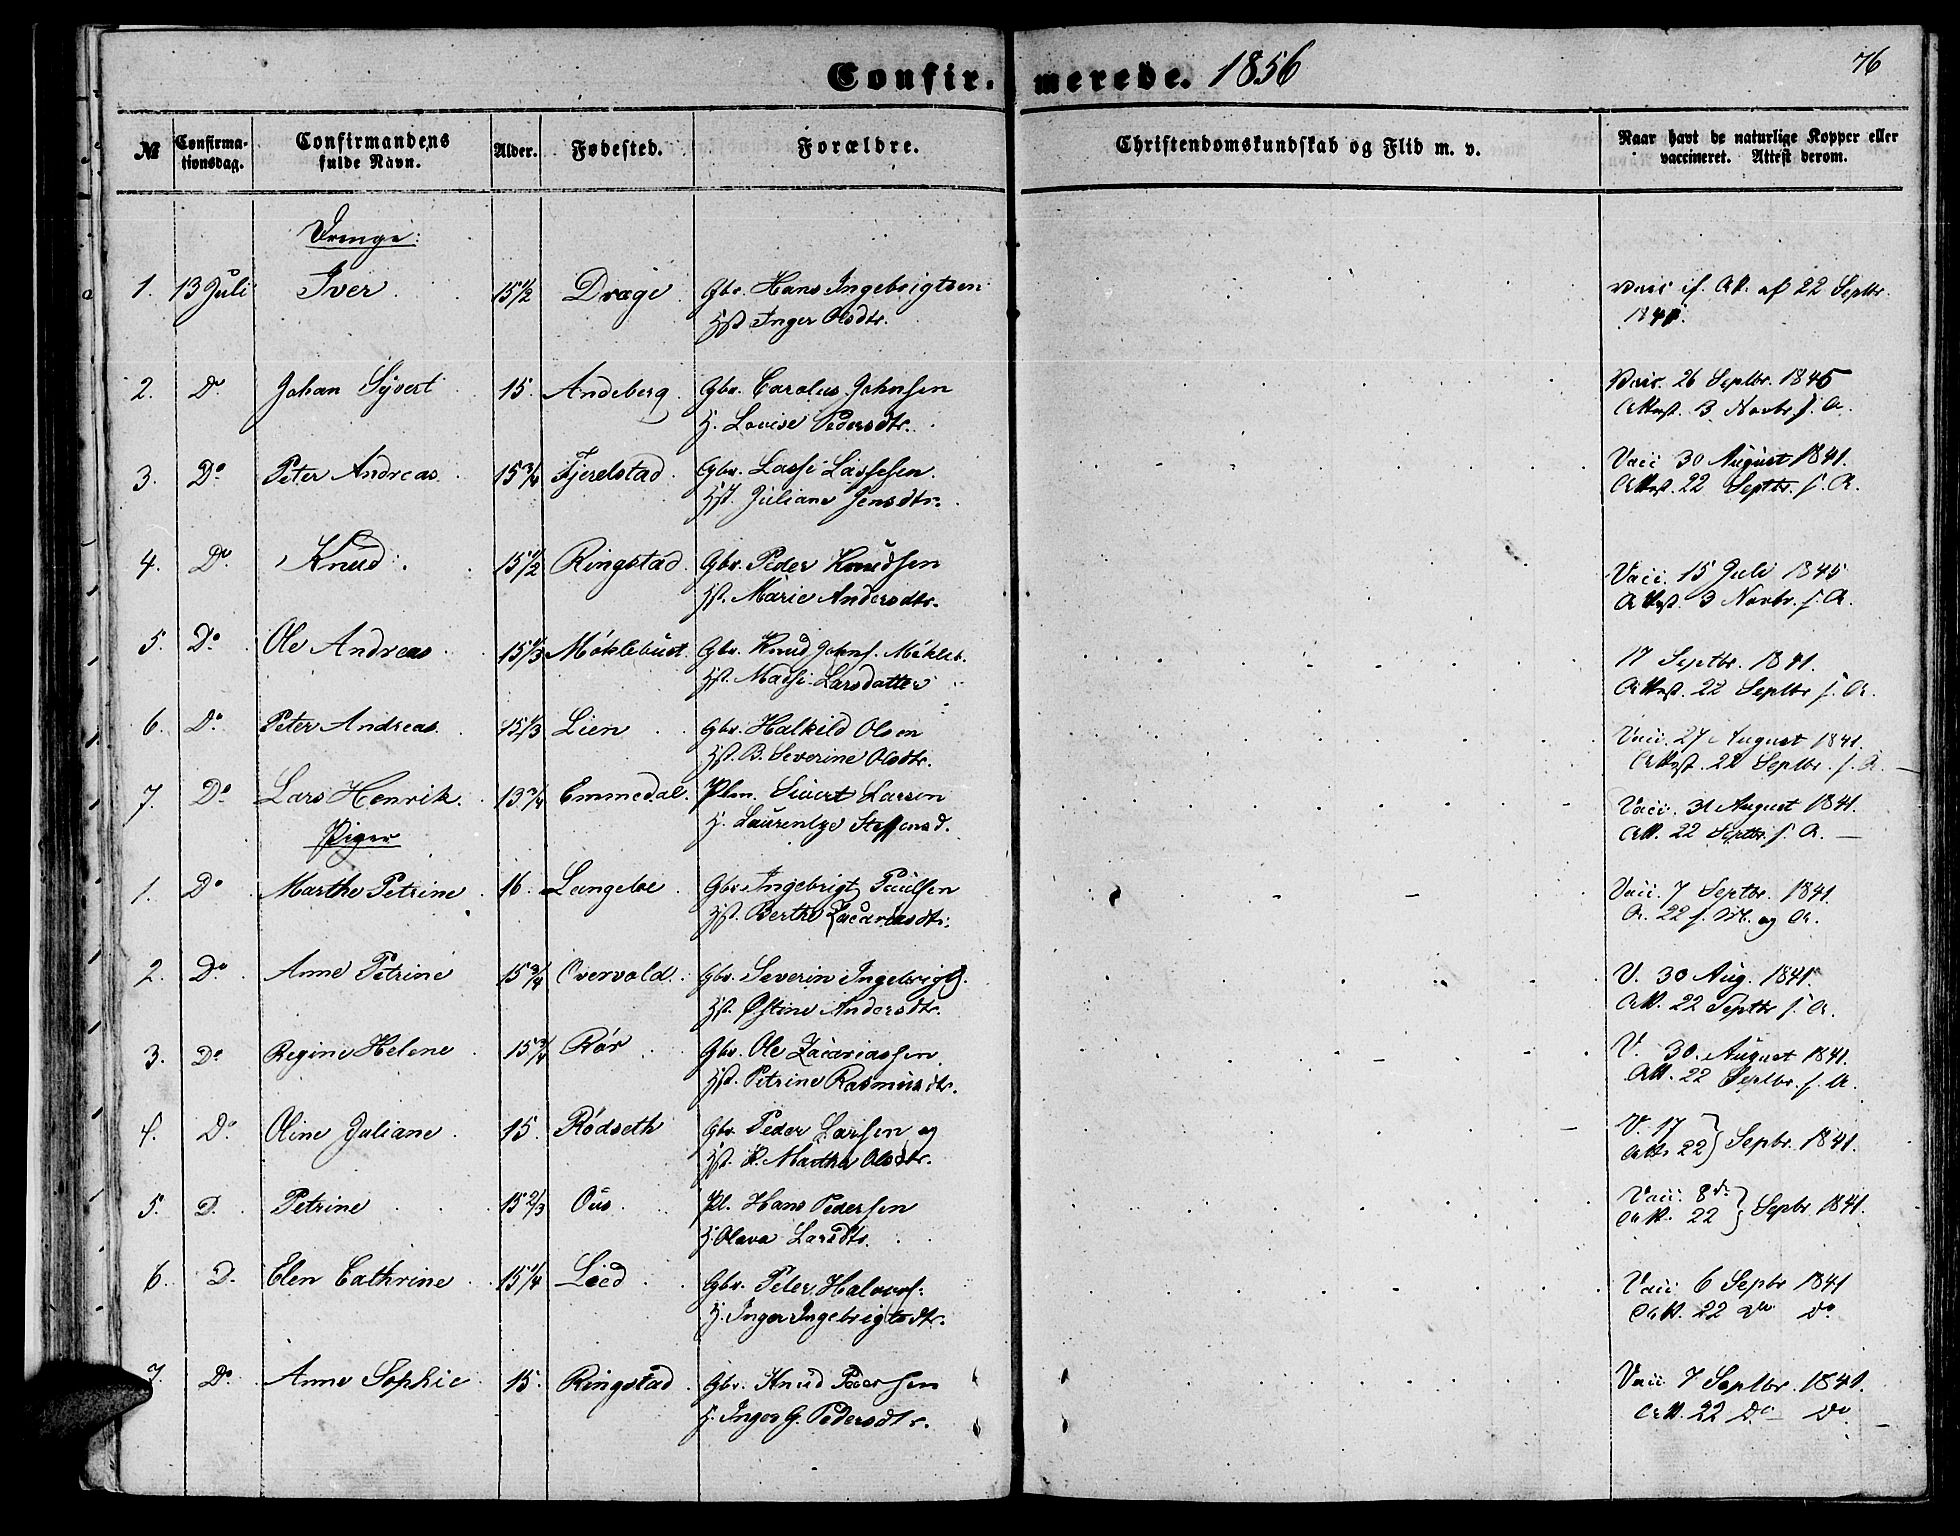 Confirmerede. 1856
76
№ Confirmationsdag. Confirmandens fulde Navn. Alder. Fødested. Forældre. Christendomskundskab og Flid m. v. Naar havt de naturlige Kopper eller vaccineret. Attest derom.
Drenge:
1. 13 Juli Iver 15½ Drage Gbr. Hans Ingebrigtsen Vacc. if. Att. af 22 Septbr.
Hst Inger Olsdtr. 1841.
2. Do Johan Syvert 15. Andeberg Gbr. Carolus Johnsen Vacc. 26 Septbr. 1845
H. Lovise Pedersdtr. Attest. 3 Novbr. s. A.
3. Do Peter Andreas 15¾ Fjerelstad Gbr. Lasse Lassesen Vacc 30 August 1841.
Hst. Juliane Jensdtr. Attest. 22 Septbr. s. A.
4. Do Knud 15½ Ringstad Gbr. Peder Knudsen Vacc. 15 Juli 1845
Hst. Marie Andersdtr. Attest. 3 Novbr. s. A.
5. Do Ole Andreas 15⅓ Möklebust Gbr. Knud Johns. Mökleb. 17 Septbr. 1841.
Hst. Madsi Larsdatter Attest. 22 Septbr s. A.
6. Do Peter Andreas 15⅓ Lien Gbr. Halkild Olsen Vacc. 27 August 1841.
Hst. B. Severine Olsdtr. Attest. 22 Septbr. s. A.
7. Do Lars Henrik 13¾ Emmedal Plm. Sivert Larsen Vacc. 31 August 1841.
H. Laurentze Steffensd. Att. 22 Septbr s. A.
Piger
1. Do Marthe Petrine 16. Langeloe Gbr Ingebrigt Paulsen Vacc. 7 Septbr. 1841.
Hst. Berthe Zacariasdtr. A. 22 s. M. og A.
2. Do Anne Petrine 15¾ Overvold Gbr. Severin Ingebrigts. V. 30 Aug. 1841.
Hst. Østine Andersdtr. Att. 22 Septbr s. A.
3. Do Regine Helene 15¾ Rör Gbr. Ole Zacariassen V. 30. August 1841.
Hst. Petrine Rasmusdtr. Att. 22 Septbr. s. A.
4. Do Oline Juliane 15. Rödseth Gbr. Peder Larsen og V. 17
Hst. P. Marthe Olsdtr. Att. 22 Sepbr. 1841.
5. D. Petrine 15⅔ Ous Pl. Hans Pedersen Vacc. 8de
H. Olava Larsdtr. Att. 22 Sepbr. 1841.
6. D. Elen Cathrine 15¼ Lied Gbr. Peter Halvors. Vacc 6 Sepbr 1841
H. Inger Ingebrigtsdtr. Att. 22 Do Do
7. Do Anne Sophie 15. Ringstad Gbr. Knud Pedersen Vacc 7 Septbr. 1841.
H. Inger G. Pedersdtr. Att. 22 Do Do